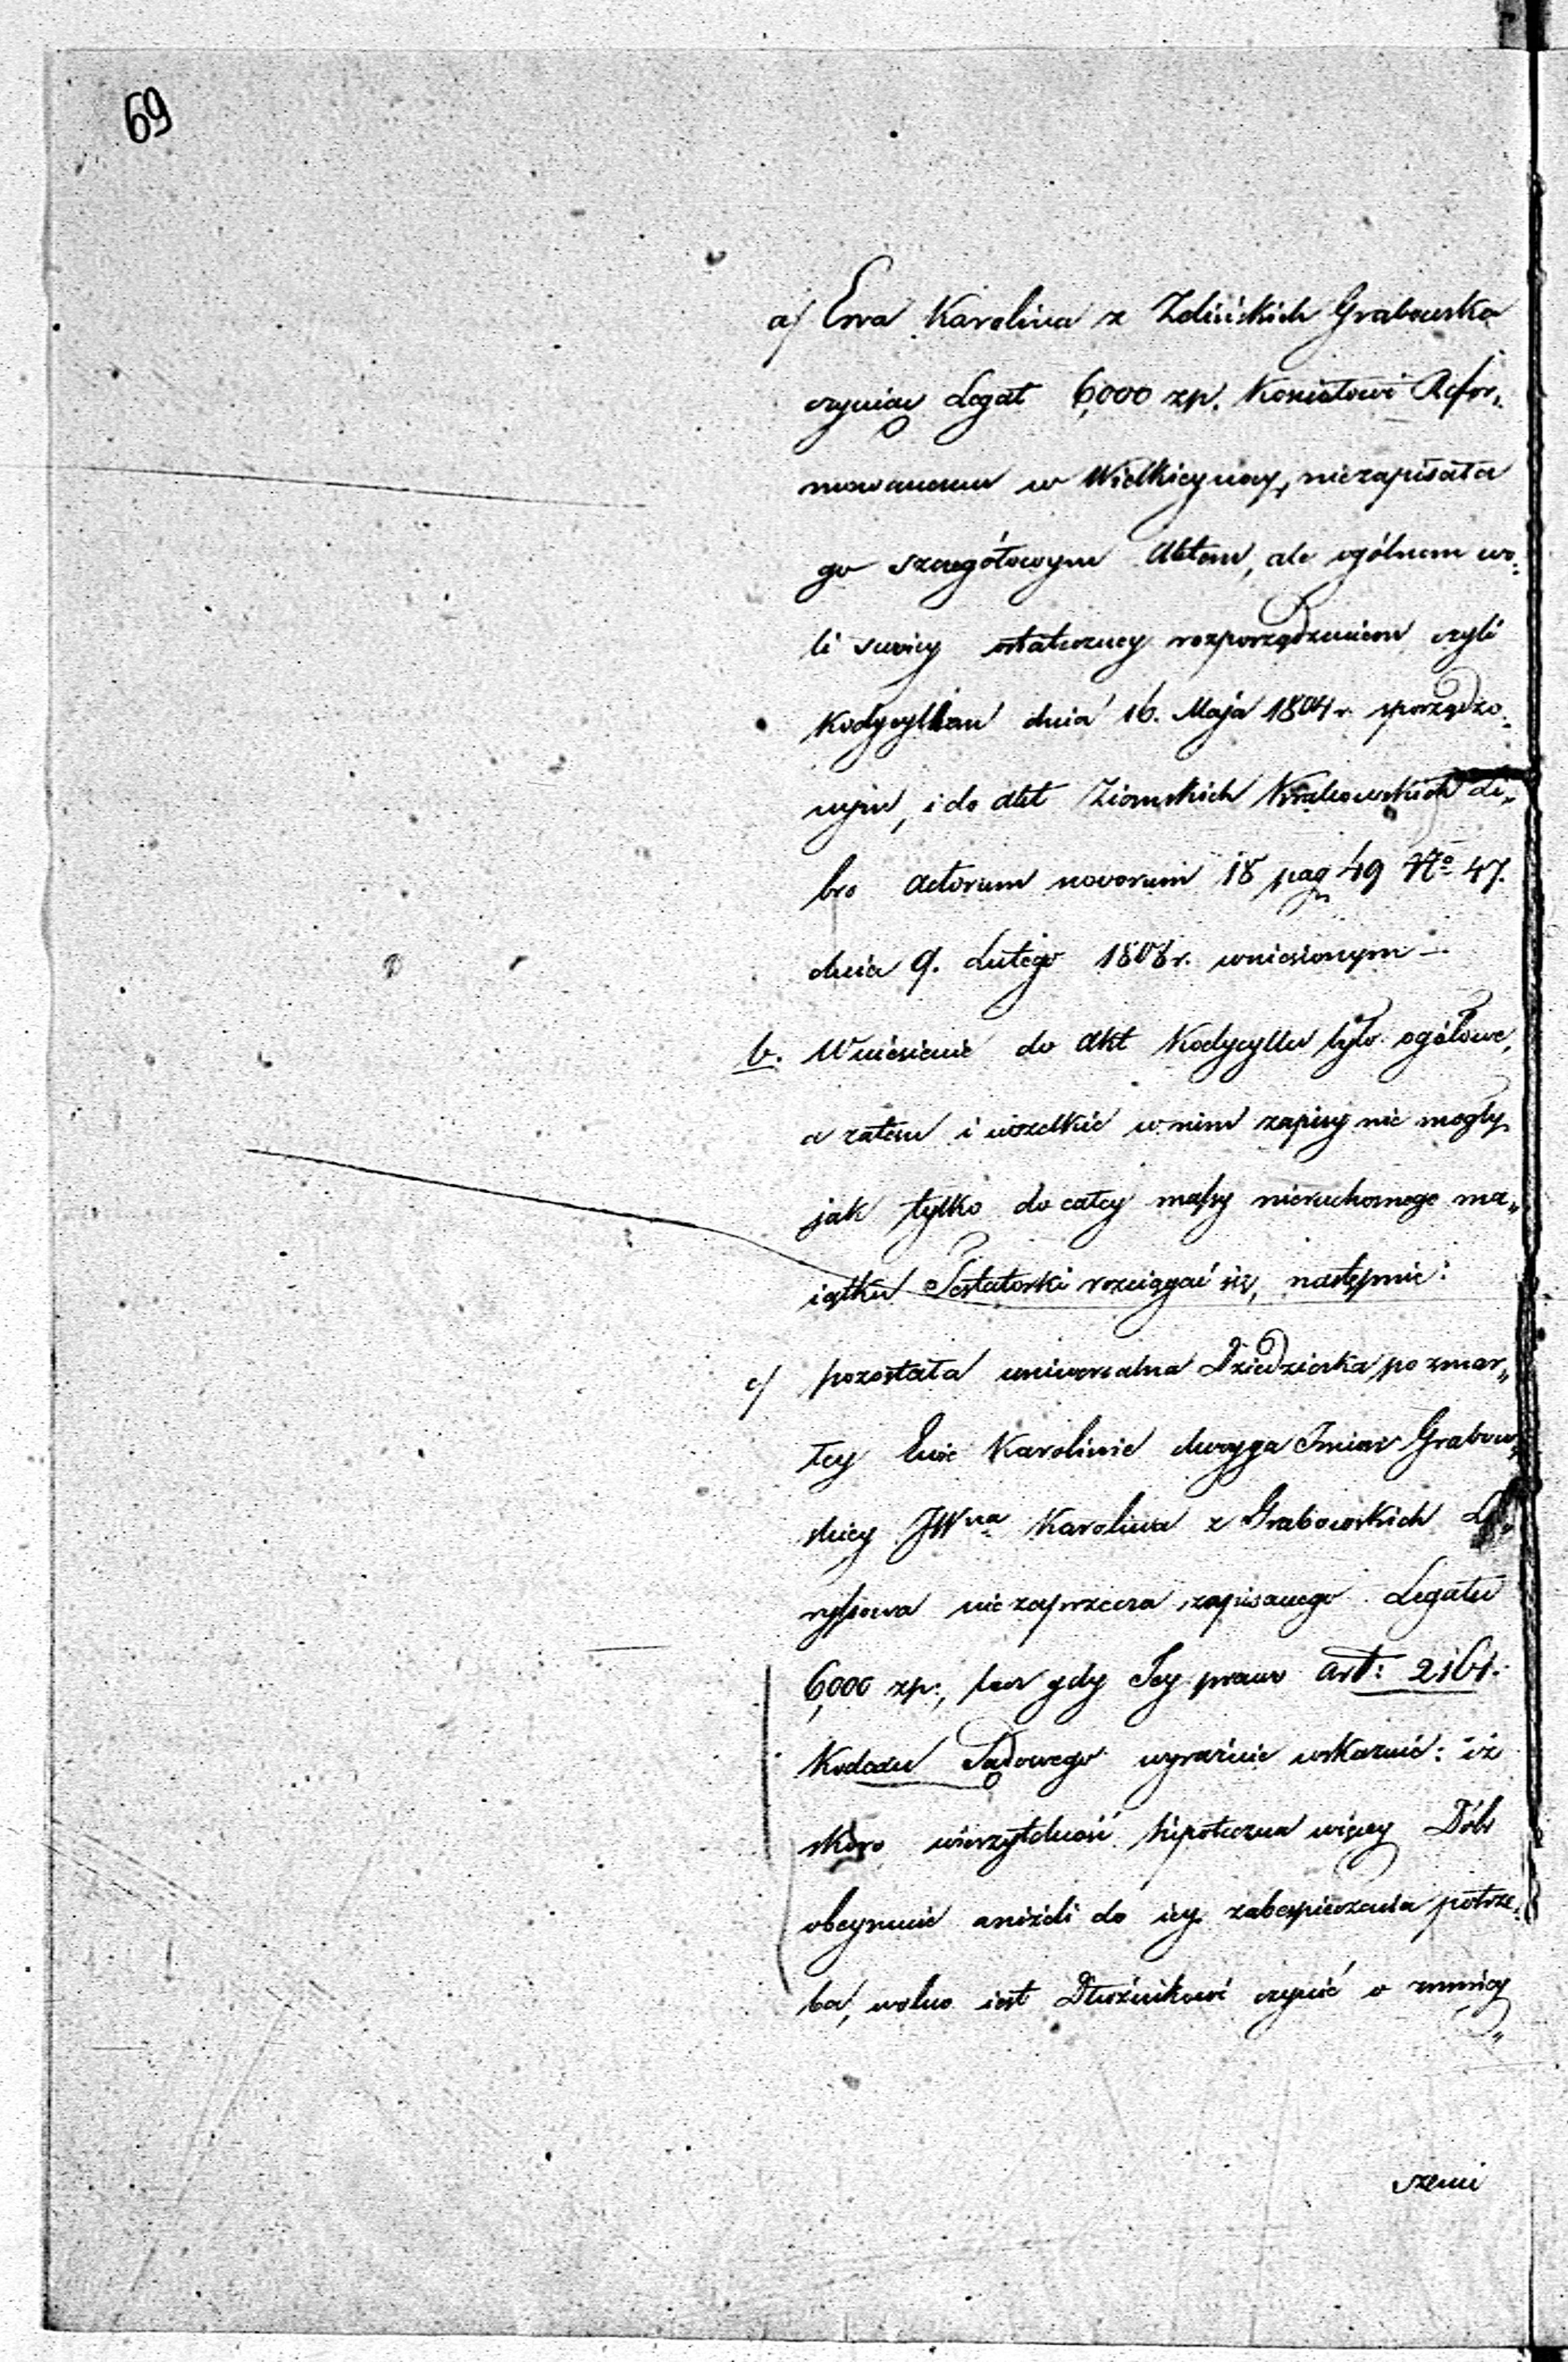 69
a/ Ewa Karolina z Zelińskich Grabowska
czyniąc Legat 6,000 zp. Konsistowi Refor„
mowanemu w Wielkieynocy, niezapisała
go szczegółowym Aktem, ale ogólnem wo„
li swoiey ostateczney rozporządzeniem czyli
Kodycyllem dnia 16. Maja 1804 r. sporządzo„
nym, i do akt Ziemskich Krakowskich li„
bro actorum novorum 18 pag 49 No 47.
dnia 9. Lutego 1808 r. wniesionym —
b. Wniesienie do akt Kodycyllu było ogółowe,
a zatem i wszelkie w nim zapisy nie mogły
jak tylko do całey massy nieruchomego ma„
iątku Testatorki rozciągać się, następnie:
c/ pozostała uniwersalna Dziedziczka po zmar„
łey Ewie Karolinie dwoyga Imion Grabow„
skiey JWna Karolina z Grabowskich
ryssowa nie zaprzecza zapisanego Legatu
6,000 zp:, lecz gdy Jey prawo art: 2161.
Kodexu Sądowego wyraźnie wskazuie: iż
skoro wierzytelność hipoteczna więcey Dóbr
obeymuie aniżeli do iey zabespieczenia potrze„
ba, wolno iest Dłużnikowi czynić o zmniey„
szenie